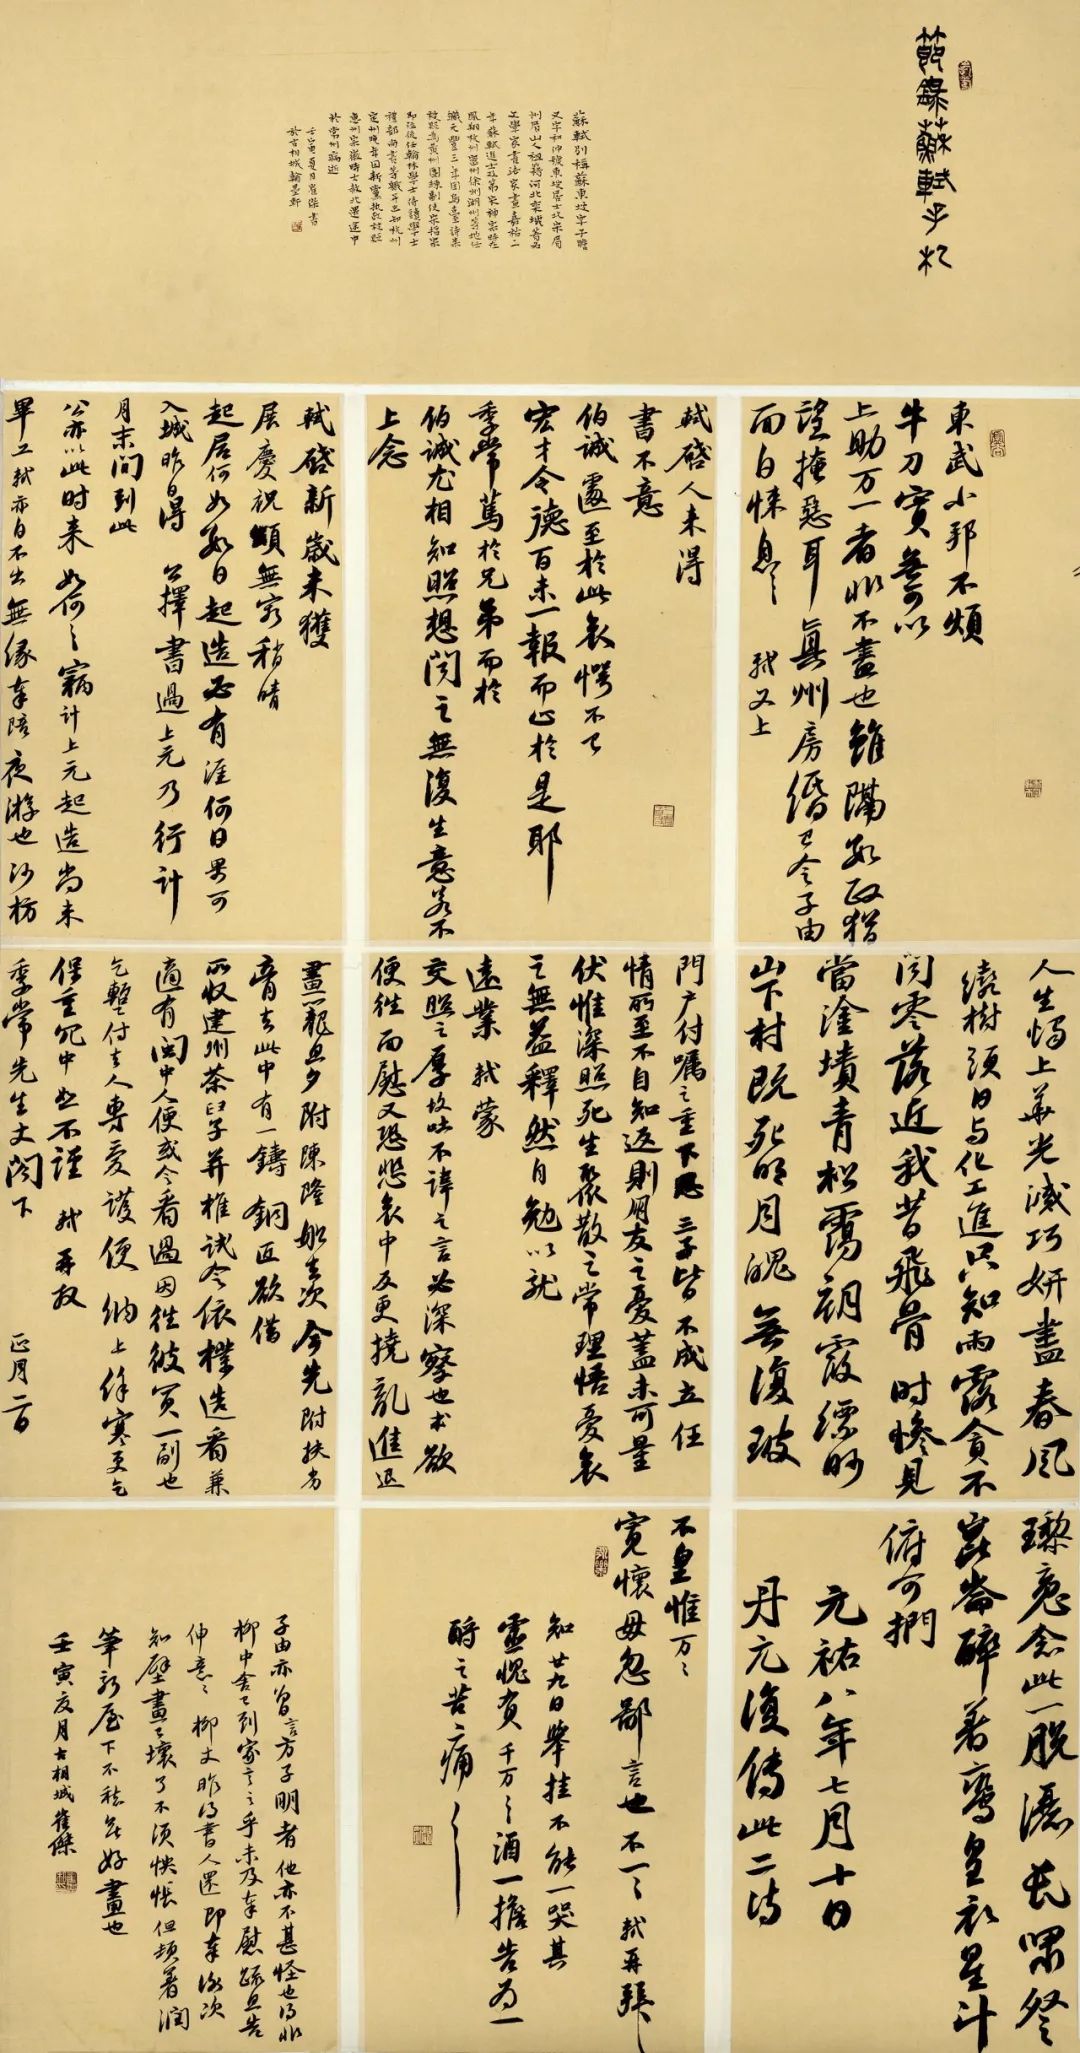 節錄蘇軾手札
蘇軾別稱蘇東坡字子瞻
又字和仲號東坡居士北宋眉
州眉山人祖籍河北欒城著名
文學家書法家畫嘉祐二
年蘇軾進士及第宋神宗時在
鳳翔杭州密州徐州湖州等地任
職元豐三年因烏臺詩案
被貶為黃州團練副使宋哲宗
即位後任翰林學士侍讀學士
禮部尚書等職并出知杭州
定州晚年因新黨執政被貶
惠州宋徽時大赦北還途中
於常州病逝
壬寅夏月崔傑書
於古相城翰墨軒
東武小邦不煩
牛刀實無可以
上助万一者非不盡也雖隔數政猶
望掩惡耳真州房緡已令子由
面白悚息々 軾又上
人生燭上華光滅巧妍盡春風
繞樹頭日与化工進只知雨露貪不
聞零落近我昔飛骨時慘見
當塗墳青松靄朝霞縹眇
山下村既死明月魄無復玻
璨魂念此一脫灑長嘯祭
崑崙醉著鸞皇衣星斗
俯可捫
元祐八年七月十日
丹元復傳此二詩
軾啓人来得
書不意
伯誠遽至於此哀愕不已
宏才令德百未一報而止於是耶
季常篤於兄弟而於
伯誠尤相知照想聞之無復生意若不
上念
門户付囑之重下思三子皆不成立任
情所至不自知返則朋友之憂蓋未可量
伏惟深照死生聚散之常理悟憂哀
之無益釋然自勉以就
遠業 軾蒙
交照之厚故吐不諱之言必深察也本欲
便往面慰又恐悲哀中反更撓亂進退
不皇惟万々
寬懷毋忽鄙言也不一々 軾再拜
知廿九日舉挂不能一哭其
靈愧負千万々酒一擔告为一
酹之苦痛々
軾啓新歲未獲
展慶祝頌無窮稍晴
起居何如數日起造必有涯何日果可
入城昨日得 公擇書過上元乃行計
月末間到此
公亦以此时来如何々竊計上元起造尚未
畢工軾亦自不出無緣奉陪夜游也沙枋
畫籠旦夕附陳隆船去次今先附扶劣
膏去此中有一鑄銅匠欲借
所收建州茶臼子并椎試令依樣造看兼
適有閩中人便或令看過因往彼買一副也
乞暫付去人專愛護便納上餘寒更乞
保重冗中恕不謹 軾再拜
季常先生丈閣下 正月二日
子由亦曾言方子明者他亦不甚怪也得非
柳中舍已到家言之乎未及奉慰疏且告
伸意々柳丈昨得書人還即奉謝次
知壁畫已壞了不須怏悵但頓著潤
筆新屋下不愁無好畫也
壬寅夏月古相城崔傑